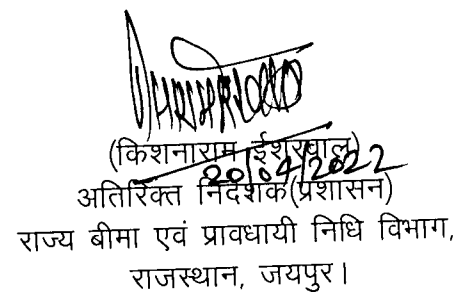 (किशनाराम ईशरवाल)
20/04/2022
अतिरिक्त निदेशक(प्रशासन)
राज्य बीमा एवं प्रावधायी निधि विभाग,
राजस्थान, जयपुर।